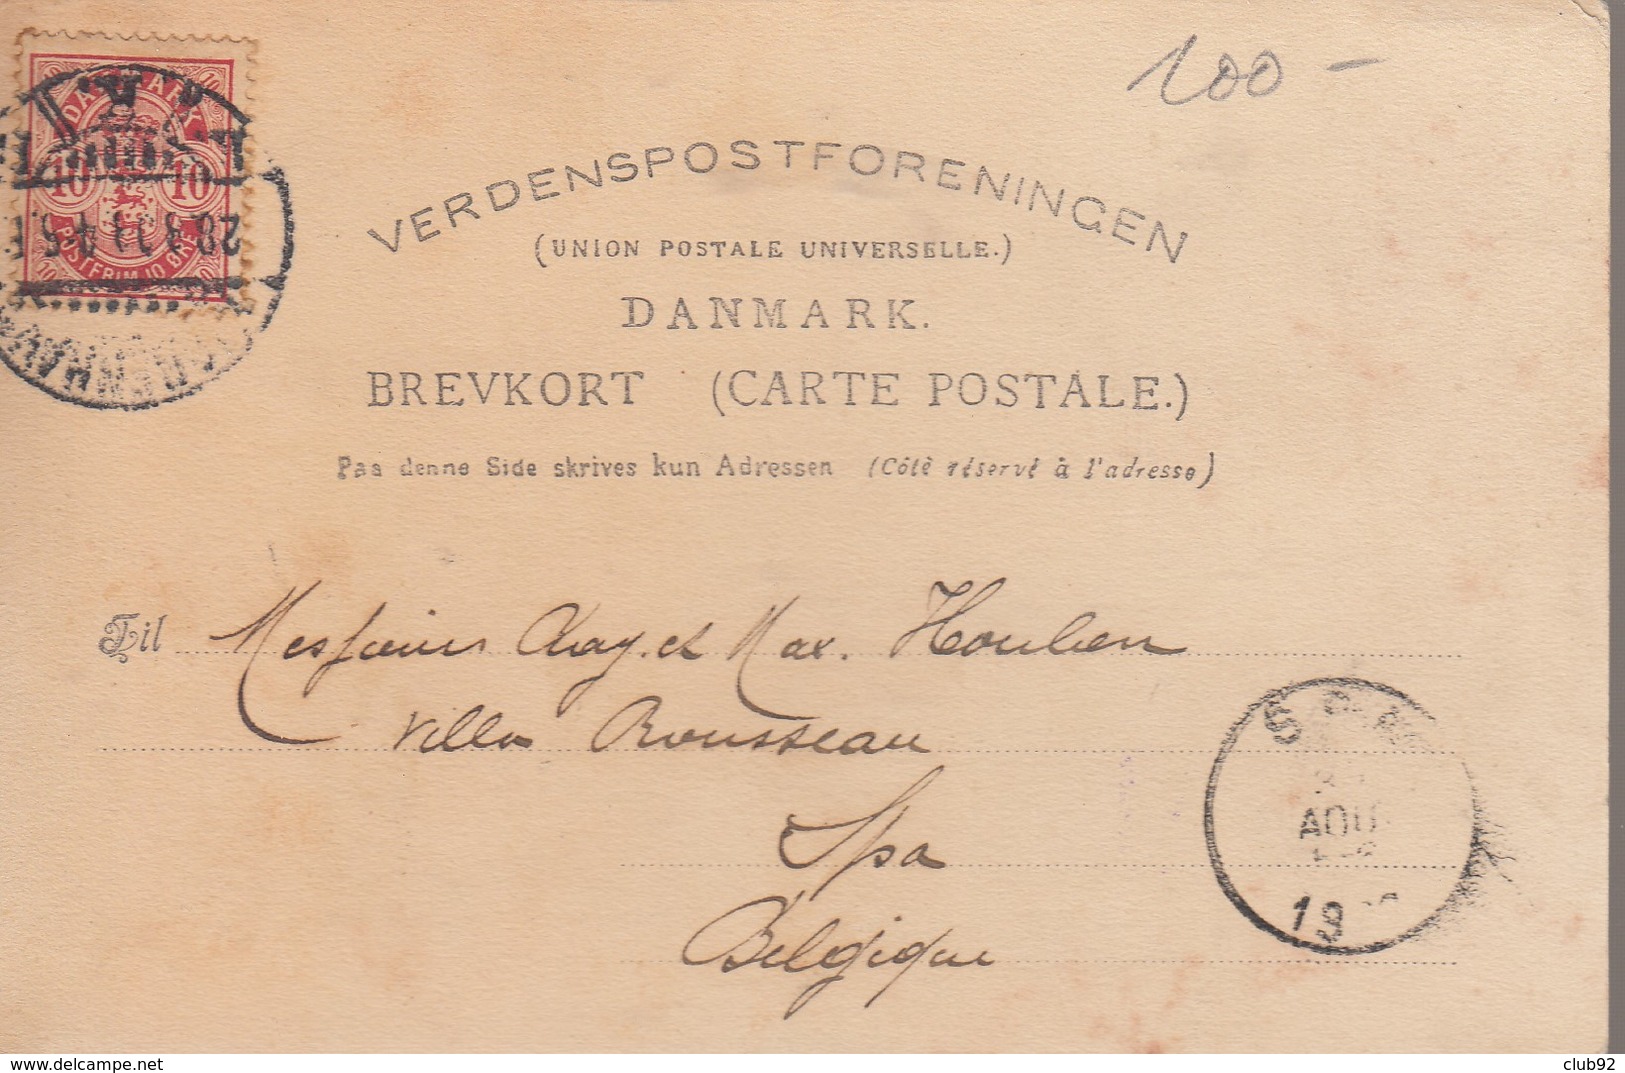 100 -
DANMARK
10 10
POSTFRIM. 10 ØRE
VERDENSPOSTFORENINGEN
(UNION POSTALE UNIVERSELLE.)
DANMARK.
BREVKORT (CARTE POSTALE.)
Paa denne Side skrives kun Adressen (Côté réservé à l'adresse)
Til Messieurs et Max. Houben
Villa Rousseau
Spa
Belgique
SPA
AOU
19
delcampe.net
club92